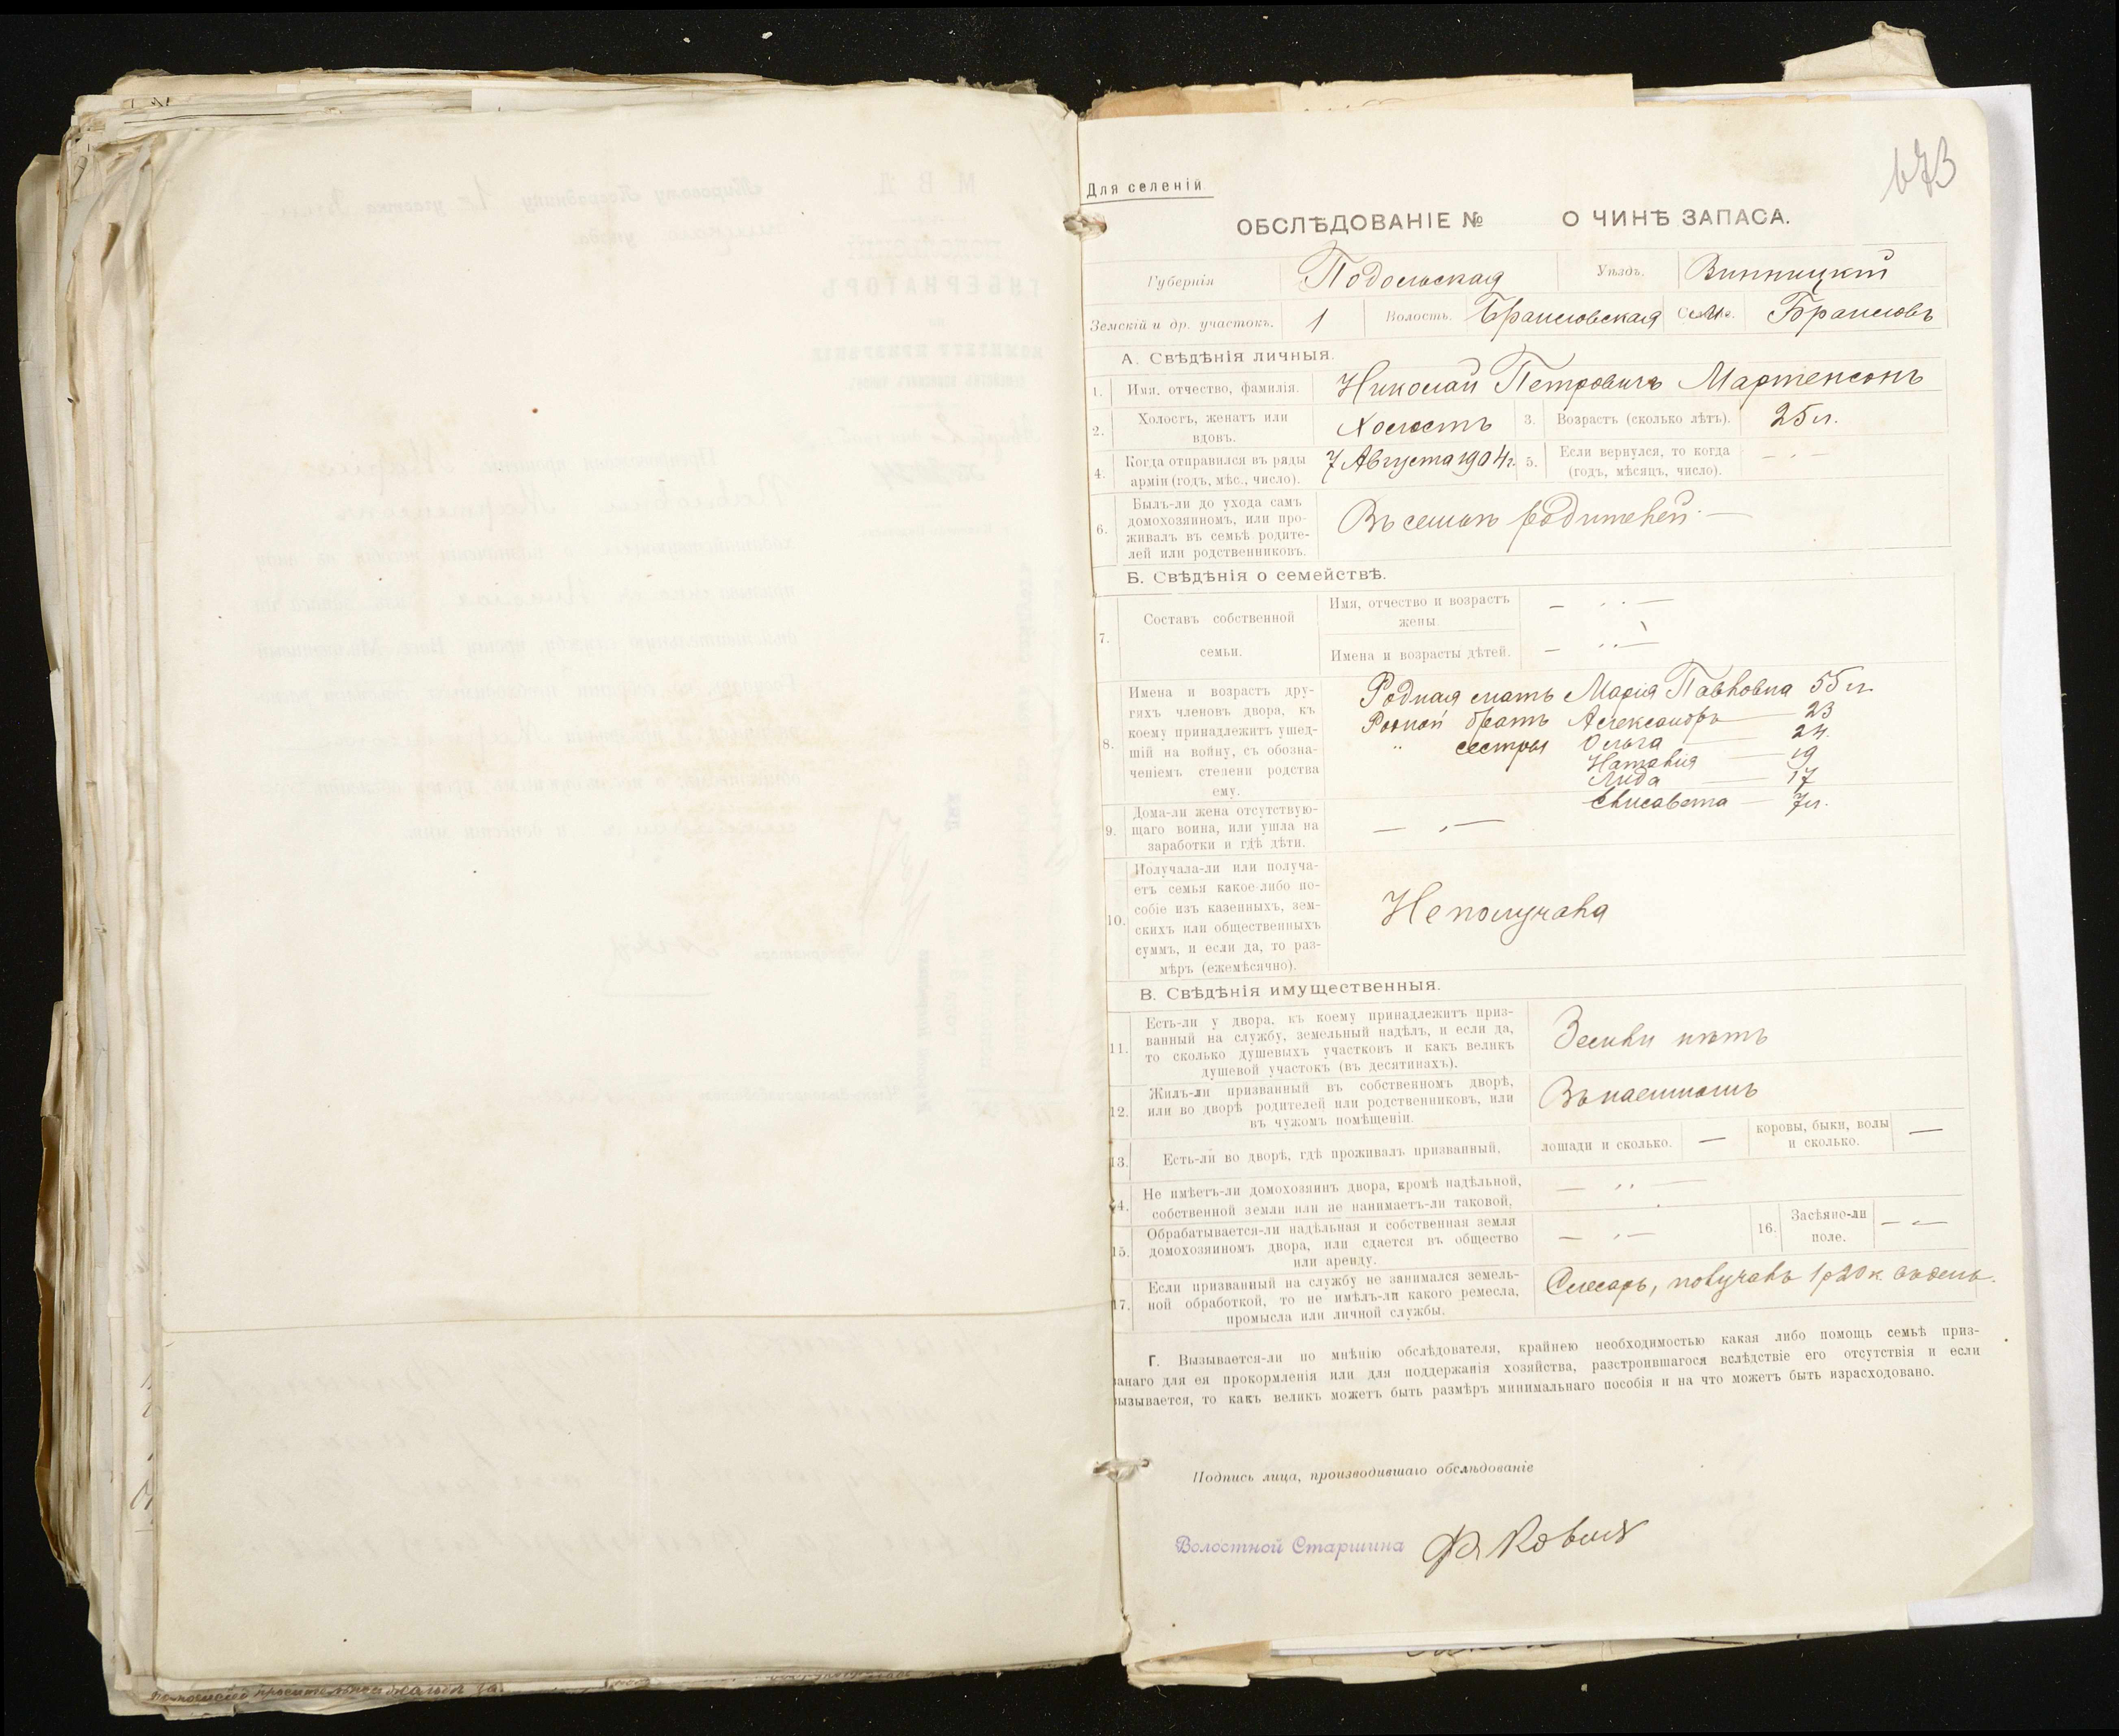 673
Для селеній.
ОБСЛѢДОВАНІЕ № О ЧИНѢ ЗАПАСА.
Губернія Подольская Уѣздъ. Винницкій
Земскій и др. участокъ. 1 Волость. Браиловская Село. М. Браиловъ
А. Свѣдѣнія личныя.
1. Имя, отчество, фамилія. Николай Петровичъ Мартенсонъ
2. Холостъ, женатъ или
вдовъ.
Холостъ
3. Возрастъ (сколько лѣтъ). 25 л.
4. Когда отправился въ ряды
арміи (годъ, мѣс., число).
7 Августа 1904 г.
5. Если вернулся, то когда
(годъ, мѣсяцъ, число).
6. Былъ-ли до ухода самъ
домохозяиномъ, или про-
живалъ въ семьѣ родите-
лей или родственниковъ.
Въ семьѣ родителей
Б. Свѣдѣнія о семействѣ.
7. Составъ собственной
семьи.
Имя, отчество и возрастъ
жены.
Имена и возрасты дѣтей.
8. Имена и возрастъ дру-
гихъ членовъ двора, къ
коему принадлежитъ ушед-
шій на войну, съ обозна-
ченіемъ степени родства
ему.
Родная мать Марія Павловна 55 л.
Родной братъ Александръ — 23
" сестры Ольга — 24.
Наталія — 19
Лида — 17
Елисавета — 7 л.
9. Дома-ли жена отсутствую-
щаго воина, или ушла на
заработки и гдѣ дѣти.
10. Получала-ли или получа-
етъ семья какое-либо по-
собіе изъ казенныхъ, зем-
скихъ или общественныхъ
суммъ, и если да, то раз-
мѣръ (ежемѣсячно).
Неполучала
В. Свѣдѣнія имущественныя.
11. Есть-ли у двора, къ коему принадлежитъ приз-
ванный на службу, земельный надѣлъ, и если да,
то сколько душевыхъ участковъ и какъ великъ
душевой участокъ (въ десятинахъ).
Земли нѣтъ
12. Жилъ-ли призванный въ собственномъ дворѣ,
или во дворѣ родителей или родственниковъ, или
въ чужомъ помѣщеніи.
Въ наемномъ
13. Есть-ли во дворѣ, гдѣ проживалъ призванный, лошади и сколько. — коровы, быки, волы
и сколько. —
14. Не имѣетъ-ли домохозяинъ двора, кромѣ надѣльной,
собственной земли или не нанимаетъ-ли таковой.
15. Обрабатывается-ли надѣльная и собственная земля
домохозяиномъ двора, или сдается въ общество
или аренду.
16. Засѣяно-ли
поле.
17. Если призванный на службу не занимался земель-
ной обработкой, то не имѣлъ-ли какого ремесла,
промысла или личной службы.
Слесарь, получалъ 1 р 20 к. въ день.
Г. Вызывается-ли по мнѣнію обслѣдователя, крайнею необходимостью какая либо помощь семьѣ приз-
ванаго для ея прокормленія или для поддержанія хозяйства, разстроившагося вслѣдствіе его отсутствія и если
вызывается, то какъ великъ можетъ быть размѣръ минимальнаго пособія и на что можетъ быть израсходовано.
Подпись лица, производившаго обслѣдованіе
Волостной Старшина